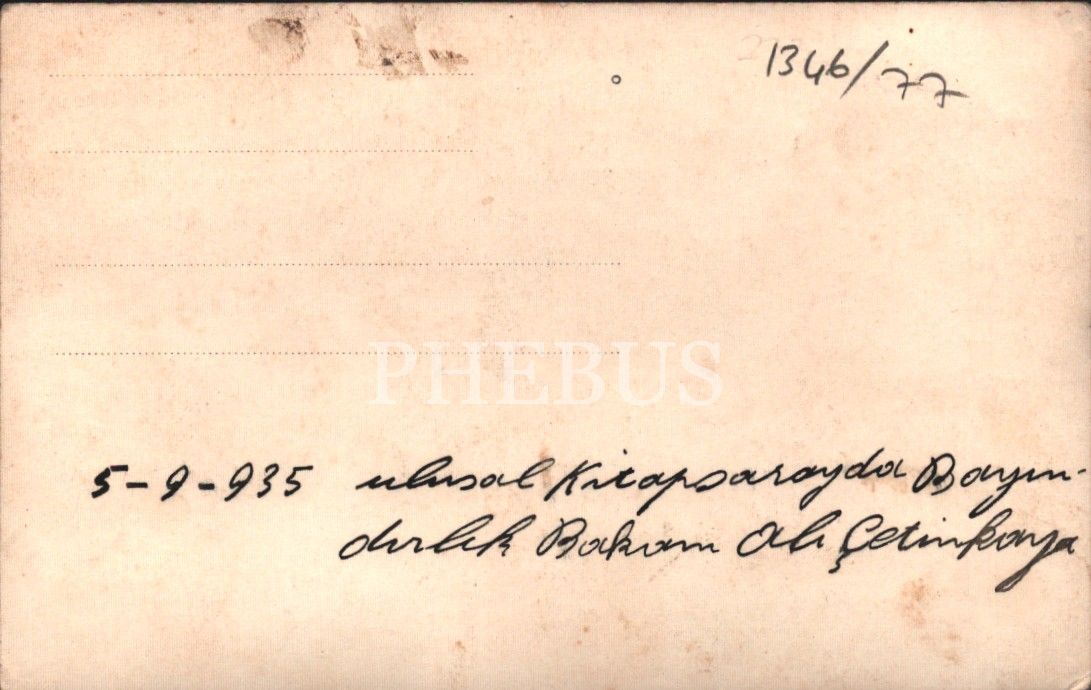 1346/77
PHEBUS
5-9-935 ulusal Kitapsarayda Bayın-
dırlık Bakanı Ali Çetinkaya